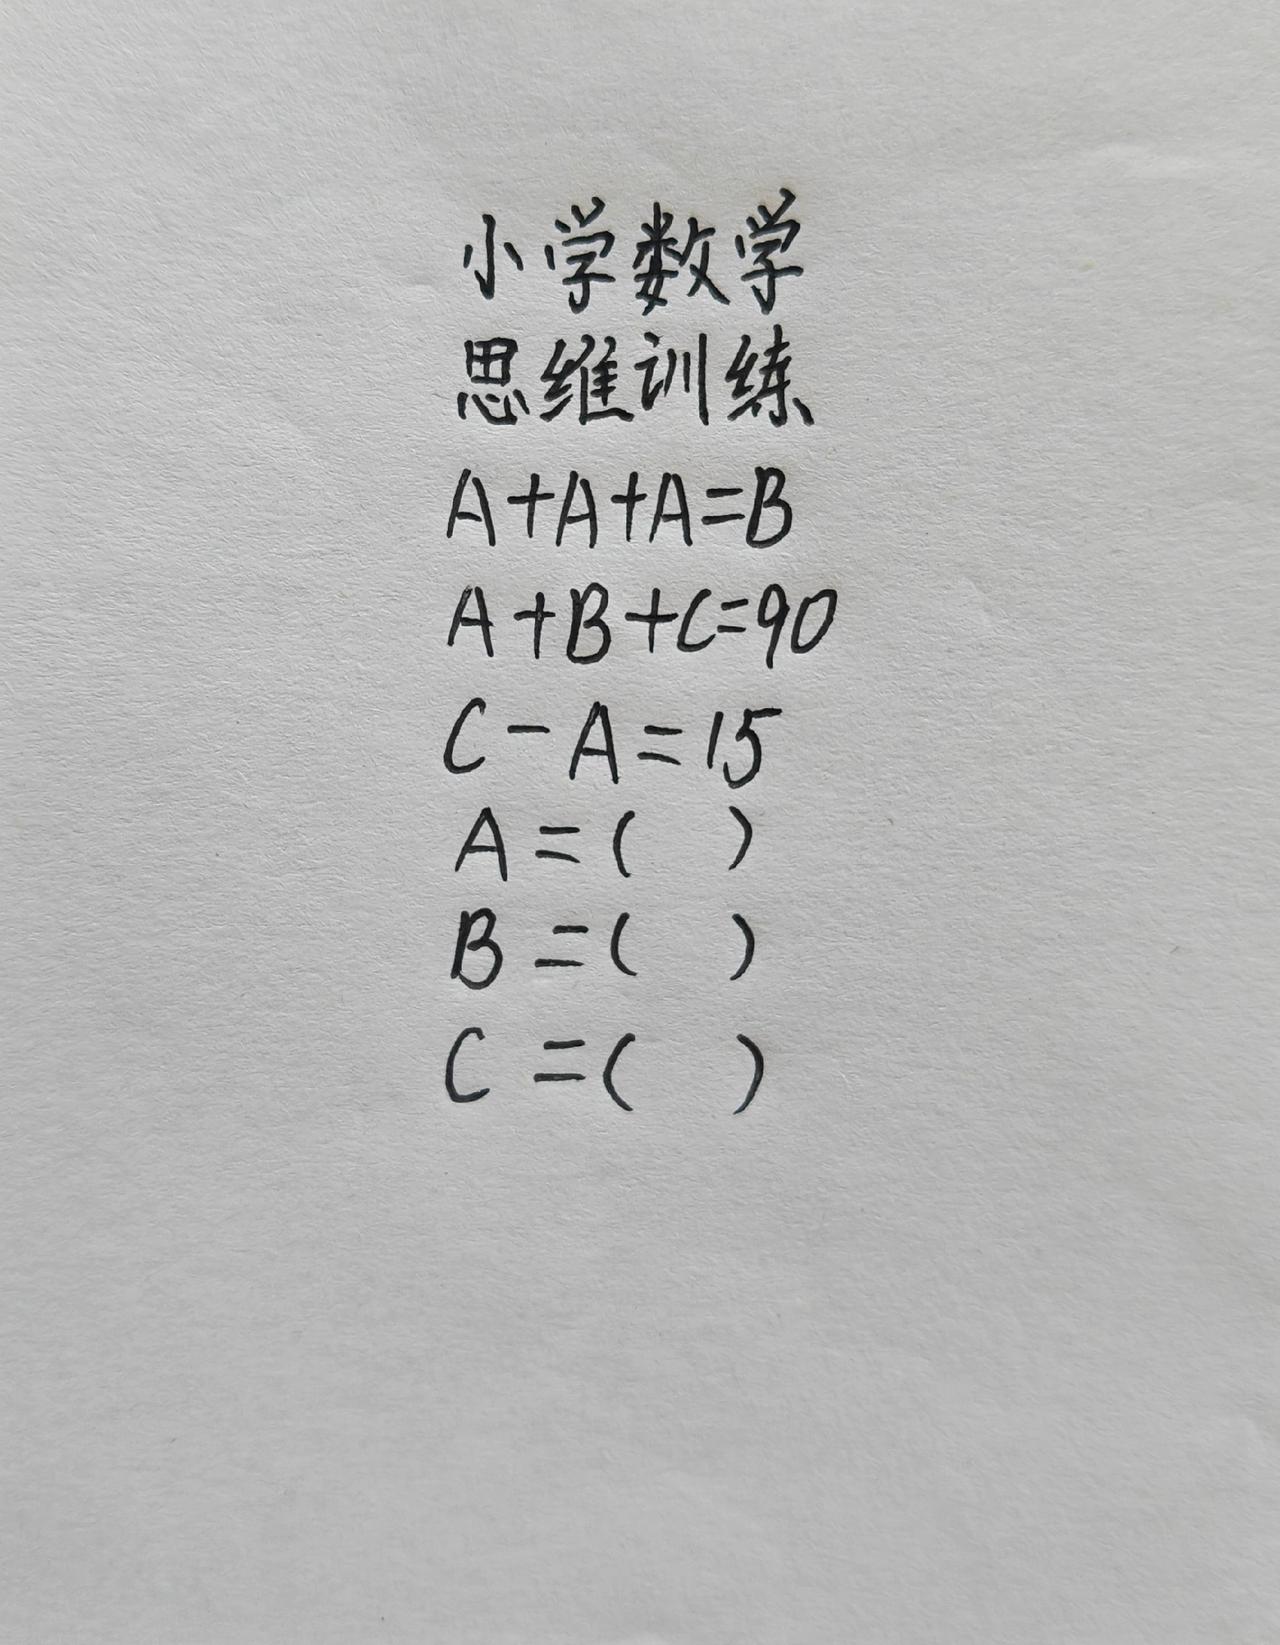 小学数学
思维训练
A+A+A=B
A+B+C=90
C-A=15
A=( )
B=( )
C=( )